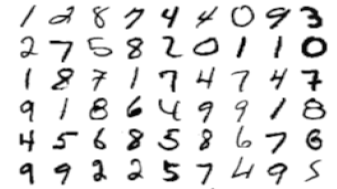 1 2 8 7 4 4 0 9 3
2 7 5 8 2 0 1 1 0
1 8 7 1 7 4 7 4 7
9 1 8 6 4 9 9 1 8
4 5 6 8 5 8 6 7 6
9 9 2 2 5 7 4 9 5